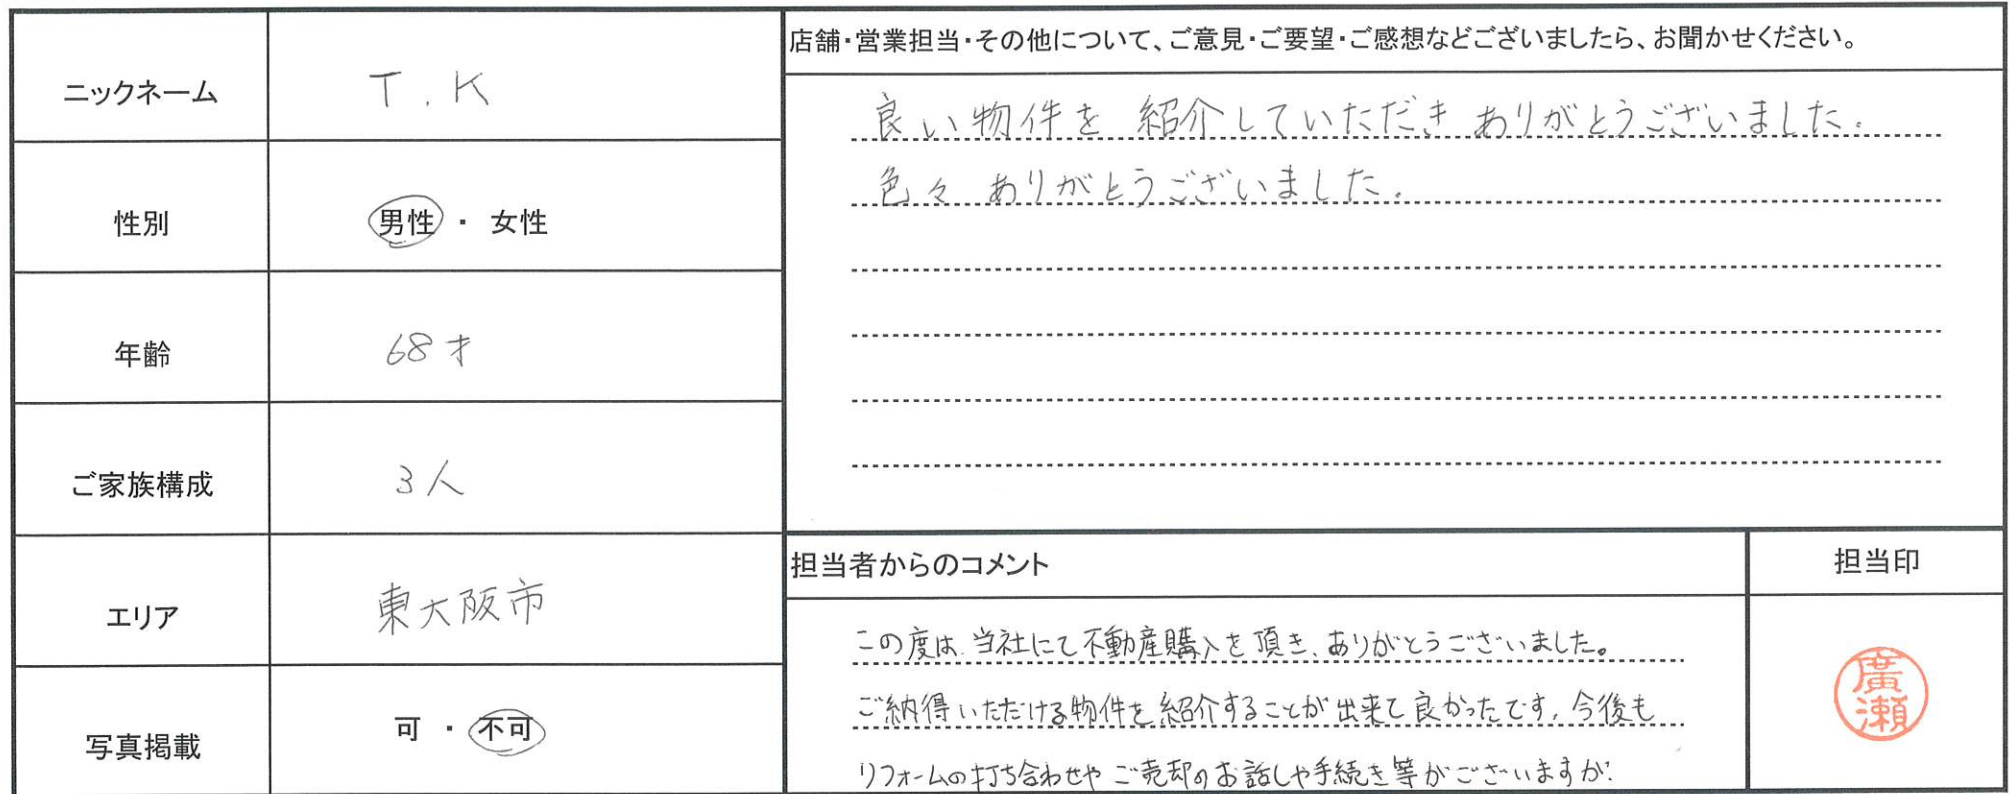 ニックネーム
T.K
性別
男性 ・ 女性
年齢
68才
ご家族構成
3人
エリア
東大阪市
写真掲載
可 ・ 不可
店舗・営業担当・その他について、ご意見・ご要望・ご感想などございましたら、お聞かせください。
良い物件を 紹介していただき ありがとうございました.
色々 ありがとうございました.
担当者からのコメント
この度は、当社にて不動産購入を頂き、ありがとうございました。
ご納得いただける物件を紹介することが出来て良かったです。今後も
リフォームの打ち合わせや ご売却のお話しや手続き等がございますが、
担当印
廣瀬